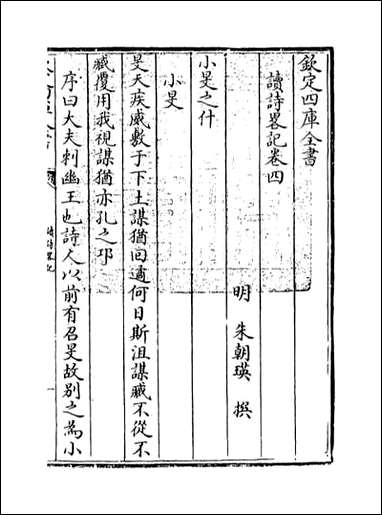 欽定四庫全書
讀詩畧記卷四
明 朱朝瑛 撰
小旻之什
小旻
旻天疾威敷于下土謀猶回遹何日斯沮謀臧不從不
臧覆用我視謀猶亦孔之邛
序曰大夫刺幽王也詩人以前有召旻故別之為小
讀詩畧記